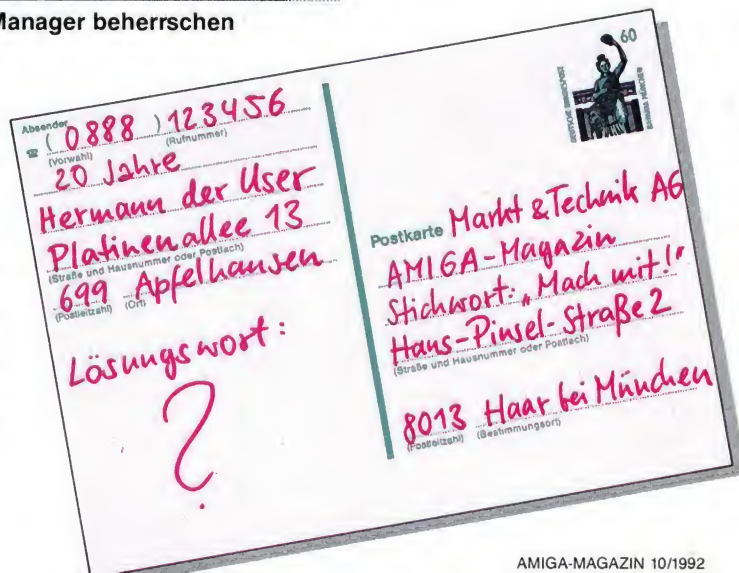 Manager beherrschen
Absender
☎ (0888) 123456
(Vorwahl) (Rufnummer)
20 Jahre
Hermann der User
Platinenallee 13
(Straße und Hausnummer oder Postfach)
699 Apfelhausen
(Postleitzahl) (Ort)
Lösungswort:
?
60
DEUTSCHE BUNDESPOST
BAVARIA MÜNCHEN
Postkarte Markt & Technik AG
AMIGA-Magazin
Stichwort: „Mach mit!"
Hans-Pinsel-Straße 2
(Straße und Hausnummer oder Postfach)
8013 Haar bei München
(Postleitzahl) (Bestimmungsort)
AMIGA-MAGAZIN 10/1992